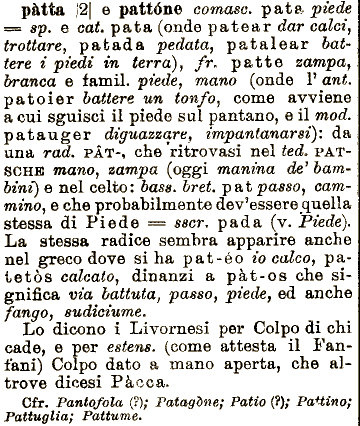 pàtta |2| e pattóne comasc. pata piede
= sp. e cat. pata (onde patear dar calci,
trottare, patada pedata, patalear bat-
tere i piedi in terra), fr. patte zampa,
branca e famil. piede, mano (onde l' ant.
patoier battere un tonfo, come avviene
a cui sguisci il piede sul pantano, e il mod.
patauger diguazzare, impantanarsi): da
una rad. PÂT-, che ritrovasi nel ted. PAT-
SCHE mano, zampa (oggi manina de' bam-
bini) e nel celto: bass. bret. pat passo, cam-
mino, e che probabilmente dev'essere quella
stessa di Piede = sscr. pada (v. Piede).
La stessa radice sembra apparire anche
nel greco dove si ha pat-éo io calco, pa-
tetòs calcato, dinanzi a pàt-os che si-
gnifica via battuta, passo, piede, ed anche
fango, sudiciume.
Lo dicono i Livornesi per Colpo di chi
cade, e per estens. (come attesta il Fan-
fani) Colpo dato a mano aperta, che al-
trove dicesi Pàcca.
Cfr. Pantofola (?); Patagòne; Patio (?); Pattino;
Pattuglia; Pattume.